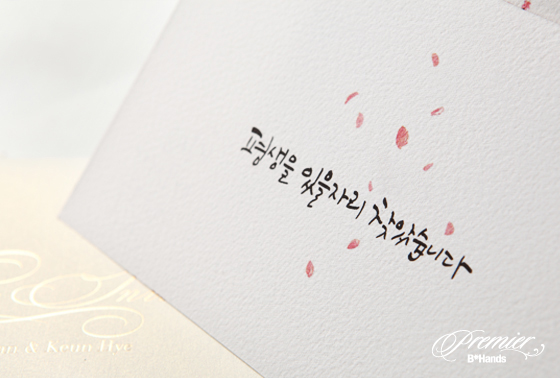 평생을 있을자리 찾았습니다
& Keun Hye
Premier
B*Hands